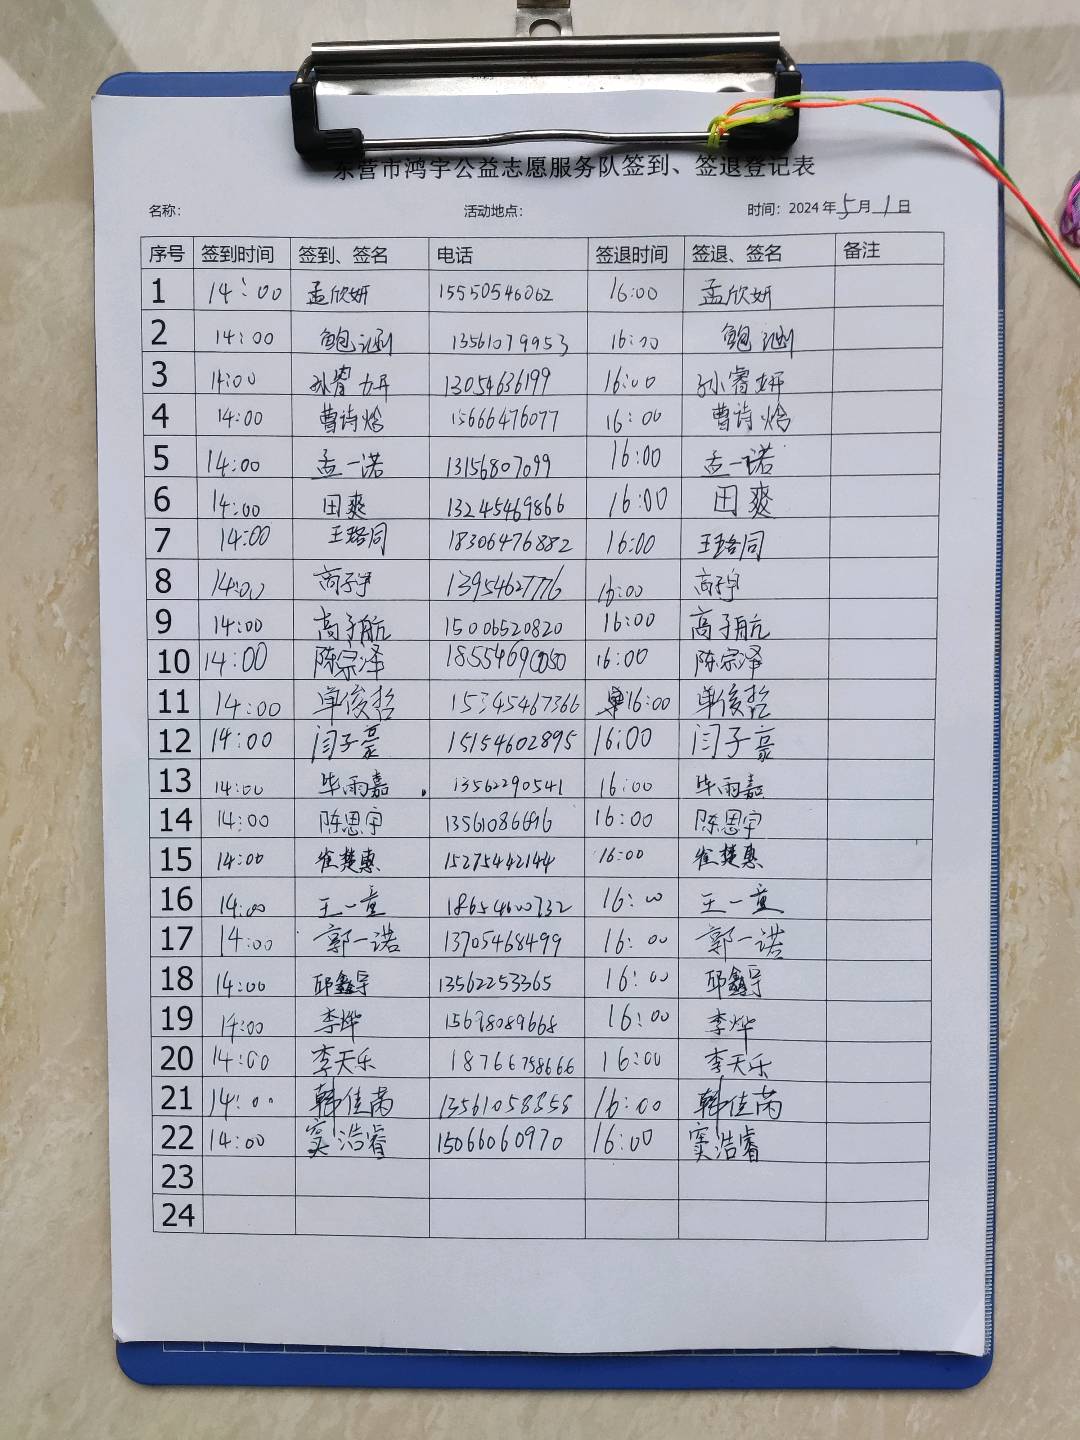 东营市鸿宇公益志愿服务队签到、签退登记表
名称: 活动地点: 时间: 2024年5月1日
序号 签到时间 签到、签名 电话 签退时间 签退、签名 备注
1 14:00 孟欣妍 15550546062 16:00 孟欣妍
2 14:00 鲍涵 13561079953 16:00 鲍涵
3 14:00 孙睿妍 13054636199 16:00 孙睿妍
4 14:00 曹诗焓 15666476077 16:00 曹诗焓
5 14:00 孟一诺 13156807099 16:00 孟一诺
6 14:00 田爽 13245469866 16:00 田爽
7 14:00 王珞同 18306476882 16:00 王珞同
8 14:00 高子宇 13954627776 16:00 高子宇
9 14:00 高子航 15006520820 16:00 高子航
10 14:00 陈宗泽 16:00 陈宗泽
11 14:00 单俊哲 15345467366 16:00 单俊哲
12 14:00 闫子豪 15154602895 16:00 闫子豪
13 14:00 毕雨嘉 13562290541 16:00 毕雨嘉
14 14:00 陈思宇 16:00 陈思宇
15 14:00 崔楚惠 15275442144 16:00 崔楚惠
16 14:00 王一童 16:00 王一童
17 14:00 郭一诺 13705468499 16:00 郭一诺
18 14:00 邱鑫宇 13562253365 16:00 邱鑫宇
19 14:00 李烨 16:00 李烨
20 14:00 李天乐 18766758666 16:00 李天乐
21 14:00 韩佳芮 16:00 韩佳芮
22 14:00 窦浩睿 15066060970 16:00 窦浩睿
23
24